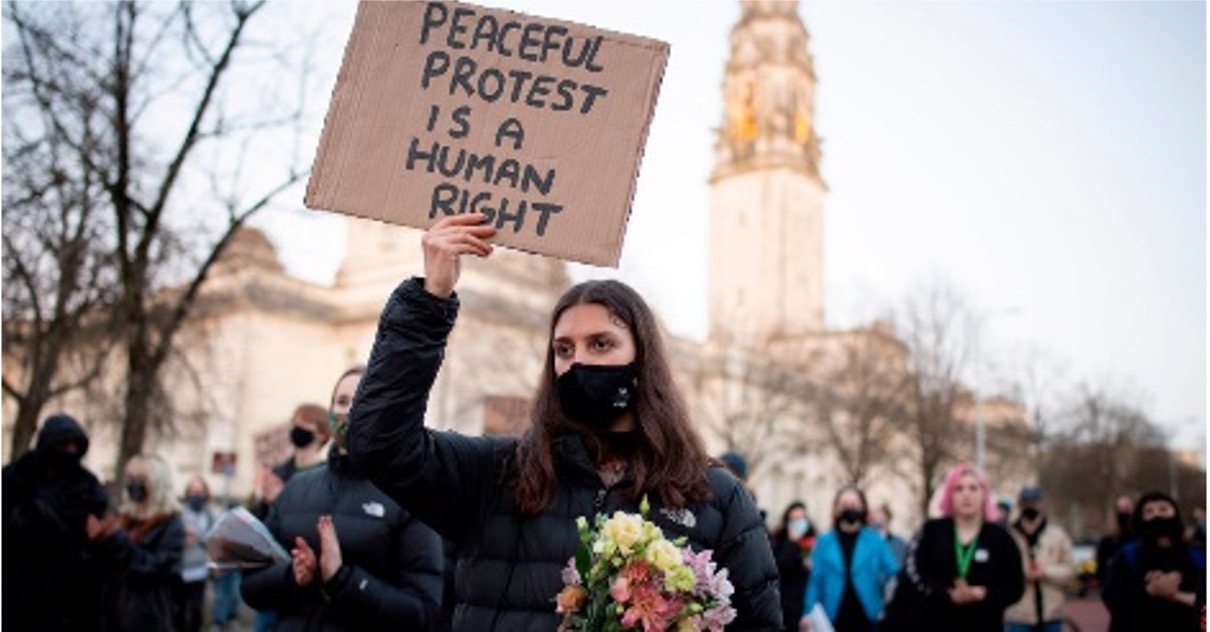 PEACEFUL
PROTEST
IS A
HUMAN
RIGHT